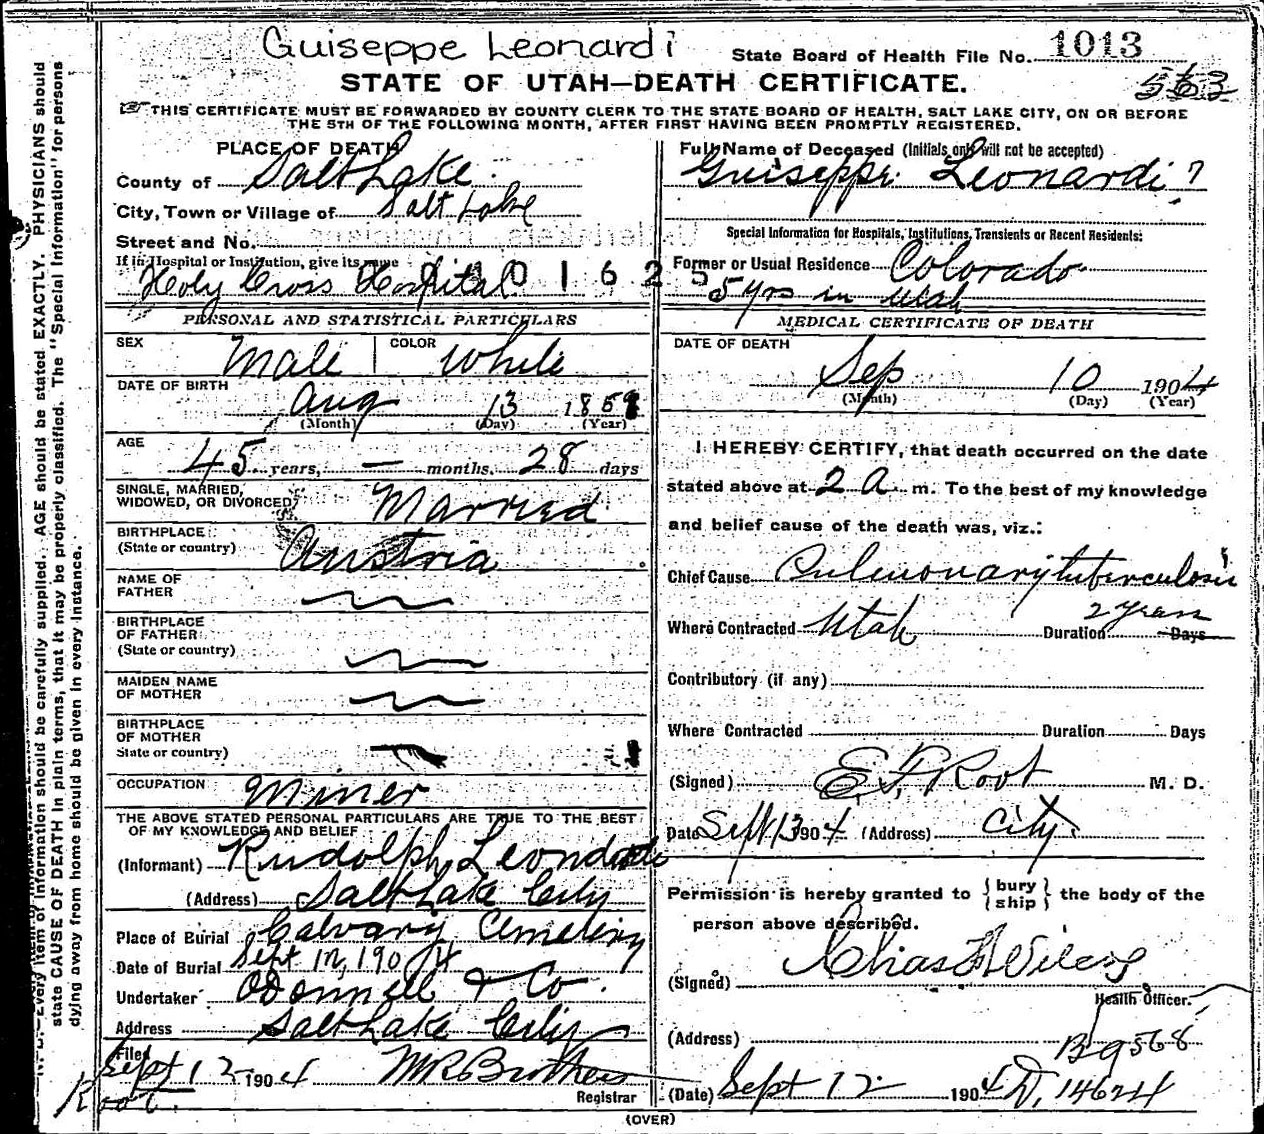 Guiseppe Leonardi
State Board of Health File No. 1013
563
STATE OF UTAH—DEATH CERTIFICATE.
THIS CERTIFICATE MUST BE FORWARDED BY COUNTY CLERK TO THE STATE BOARD OF HEALTH, SALT LAKE CITY, ON OR BEFORE
THE 5TH OF THE FOLLOWING MONTH, AFTER FIRST HAVING BEEN PROMPTLY REGISTERED.
PLACE OF DEATH
County of Salt Lake.
City, Town or Village of Salt Lake
Street and No.
If in Hospital or Institution, give its name
Holy Cross Hospital
0 1 0 1 6 2 5
PERSONAL AND STATISTICAL PARTICULARS
SEX Male COLOR White
DATE OF BIRTH
Aug 13 1859
(Month) (Day) (Year)
AGE
45 years, — months, 28 days
SINGLE, MARRIED,
WIDOWED, OR DIVORCED Married
BIRTHPLACE
(State or country) Austria
NAME OF
FATHER
BIRTHPLACE
OF FATHER
(State or country)
MAIDEN NAME
OF MOTHER
BIRTHPLACE
OF MOTHER
State or country)
OCCUPATION Miner
THE ABOVE STATED PERSONAL PARTICULARS ARE TRUE TO THE BEST
OF MY KNOWLEDGE AND BELIEF
(Informant) Rudolph
(Address) Salt Lake City
Place of Burial Calvary Cemetery
Date of Burial Sept 12, 1904
Undertaker O'Donnell & Co.
Address Salt Lake City
Filed
Sept 12 1904 M R Brothers
Registrar
Root.
Full Name of Deceased (Initials only will not be accepted)
Guiseppe Leonardi ?
Special Information for Hospitals, Institutions, Transients or Recent Residents:
Former or Usual Residence Colorado.
5 yrs in Utah
MEDICAL CERTIFICATE OF DEATH
DATE OF DEATH
Sep 10 1904
(Month) (Day) (Year)
I HEREBY CERTIFY, that death occurred on the date
stated above at 2 a m. To the best of my knowledge
and belief cause of the death was, viz.:
Chief Cause Pulmonary tuberculosis
Where Contracted Utah Duration 2 years Days
Contributory (if any)
Where Contracted Duration Days
(Signed) E. F. Root M. D.
Date Sept 13 1904 (Address) City.
Permission is hereby granted to {bury ship} the body of the
person above described.
(Signed) Chas
Health Officer.
(Address)
B 9568
(Date) Sept 12 1904 D. 14624
(OVER)
N. B.—Every item of information should be carefully supplied. AGE should be stated EXACTLY. PHYSICIANS should
state CAUSE OF DEATH in plain terms, that it may be properly classified. The "Special Information" for persons
dying away from home should be given in every instance.